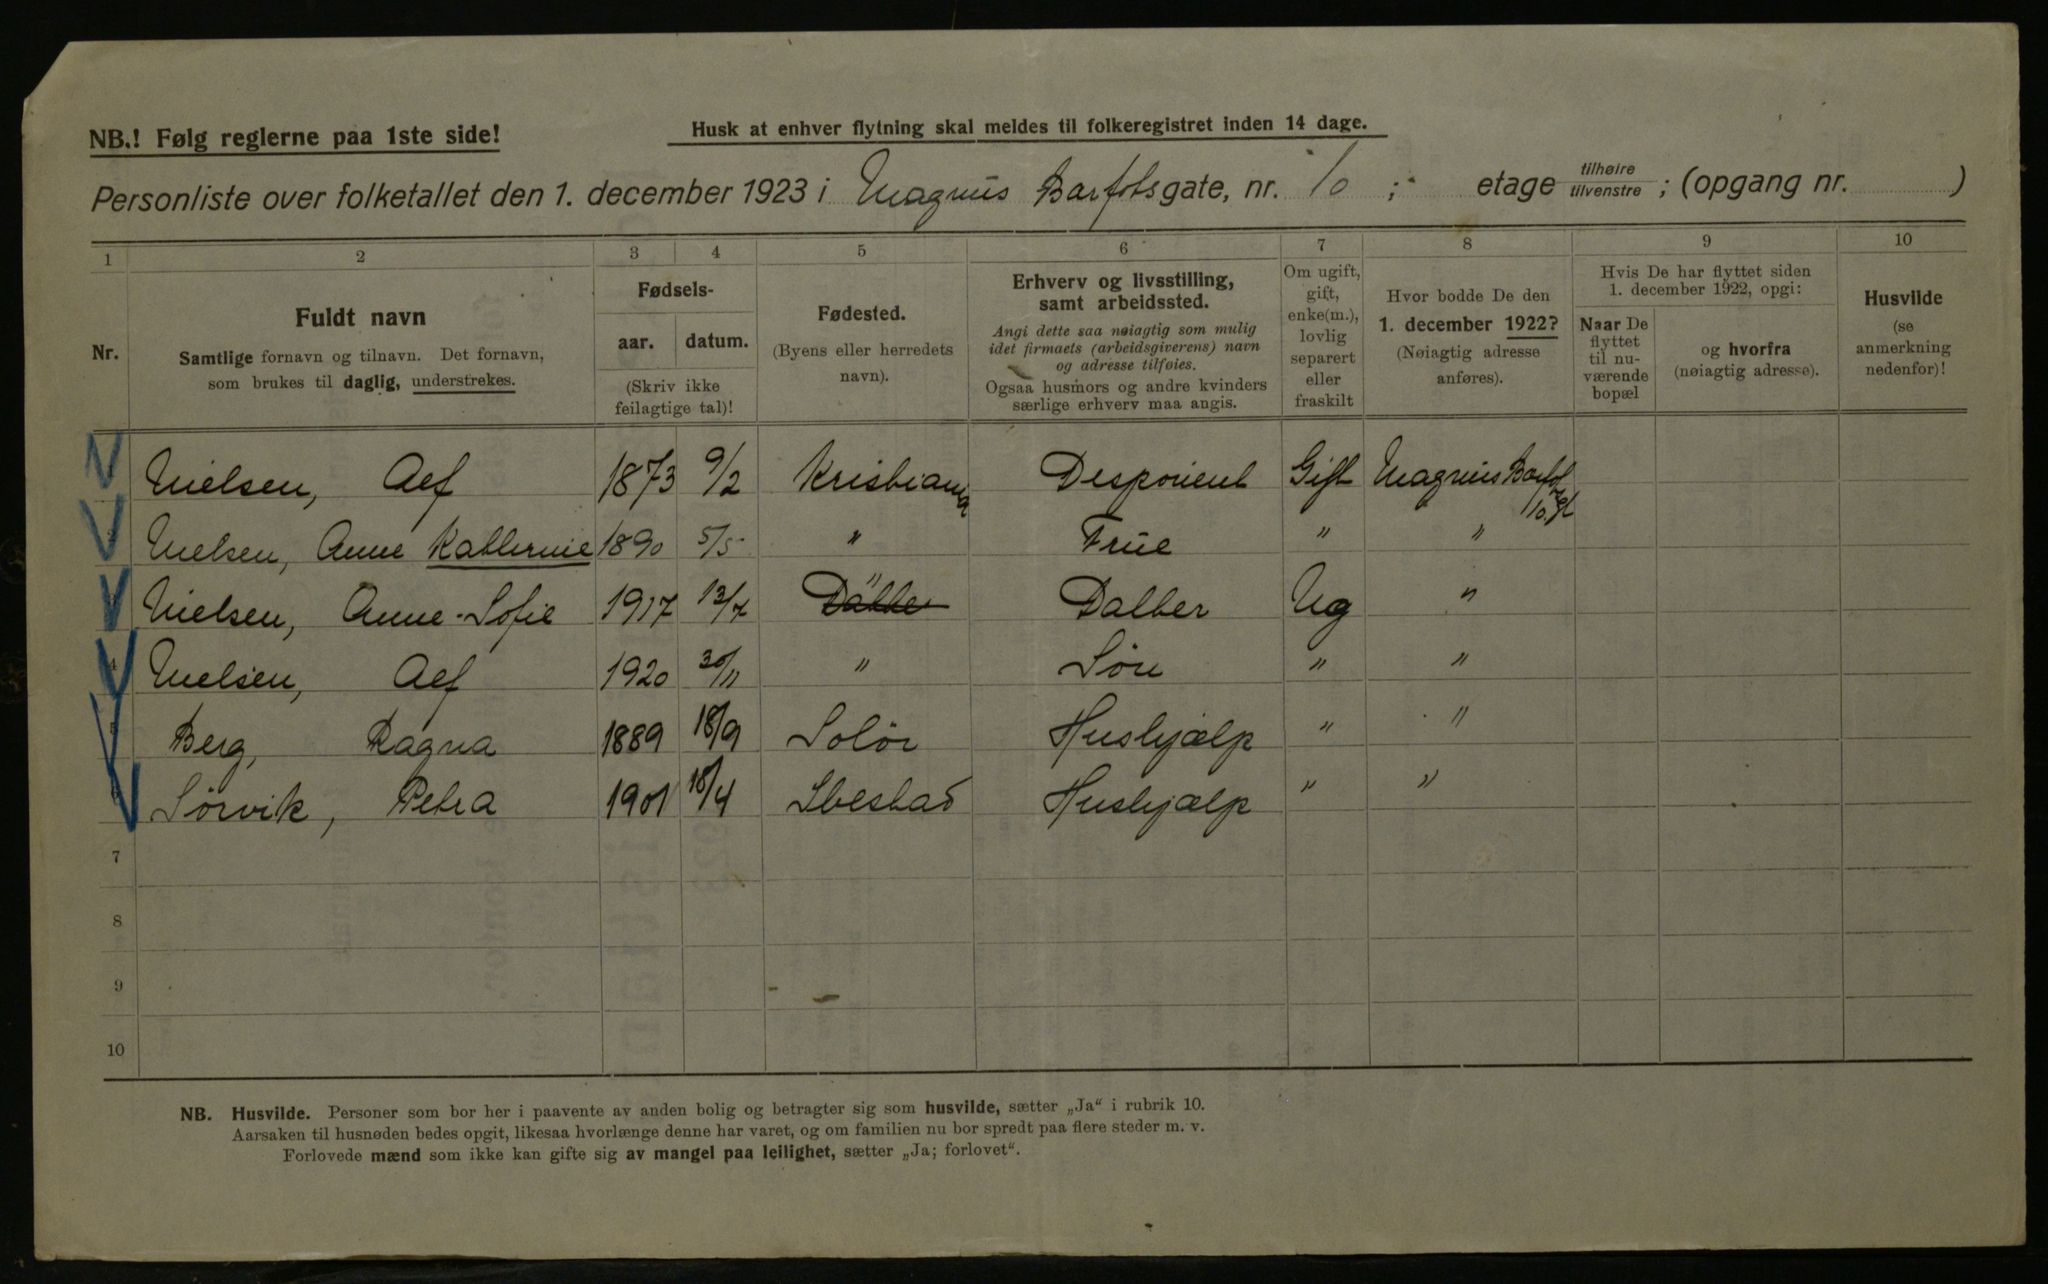 NB.! Følg reglerne paa 1ste side!
Husk at enhver flytning skal meldes til folkeregistret inden 14 dage.
Personliste over folketallet den 1. december 1923 i Magnus Barfotsgate, nr. 10 ; etage tilhøire tilvenstre ; (opgang nr. )
1 2 3 4 5 6 7 8 9 10
Nr.
Fuldt navn
Samtlige fornavn og tilnavn. Det fornavn,
som brukes til daglig, understrekes.
Fødsels-
aar. datum.
(Skriv ikke
feilagtige tal)!
Fødested.
(Byens eller herredets
navn).
Erhverv og livsstilling,
samt arbeidssted.
Angi dette saa nøiagtig som mulig
idet firmaets (arbeidsgiverens) navn
og adresse tilføies.
Ogsaa husmors og andre kvinders
særlige erhverv maa angis.
Om ugift,
gift,
enke(m.),
lovlig
separert
eller
fraskilt
Hvor bodde De den
1. december 1922?
(Nøiagtig adresse
anføres).
Hvis De har flyttet siden
1. december 1922, opgi:
Naar De
flyttet
til nu-
værende
bopæl
og hvorfra
(nøiagtig adresse).
Husvilde
(se
anmerkning
nedenfor)!
Nielsen, Alf 1873 9/2 Kristiania Disponent Gift Magnus Barfotsgt 10
Nielsen, Anne Kathernie 1890 5/5 " Frue " "
3 Nielsen, Anne-Sofie 1917 13/7 " Datter Datter Ug "
4 Nielsen, Alf 1920 30/11 " Sön " "
5 Berg, Ragna 1889 18/9 Solör Hushjælp " "
6 Sørvik, Petra 1901 18/4 Ibestad Hushjælp " "
7
8
9
10
NB. Husvilde. Personer som bor her i paavente av anden bolig og betragter sig som husvilde, sætter „Ja“ i rubrik 10.
Aarsaken til husnøden bedes opgit, likesaa hvorlænge denne har varet, og om familien nu bor spredt paa flere steder m. v.
Forlovede mænd som ikke kan gifte sig av mangel paa leilighet, sætter „Ja; forlovet“.